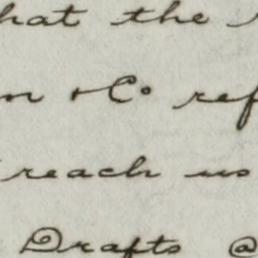 hat the
n & Co ref
reach us
Drafts @